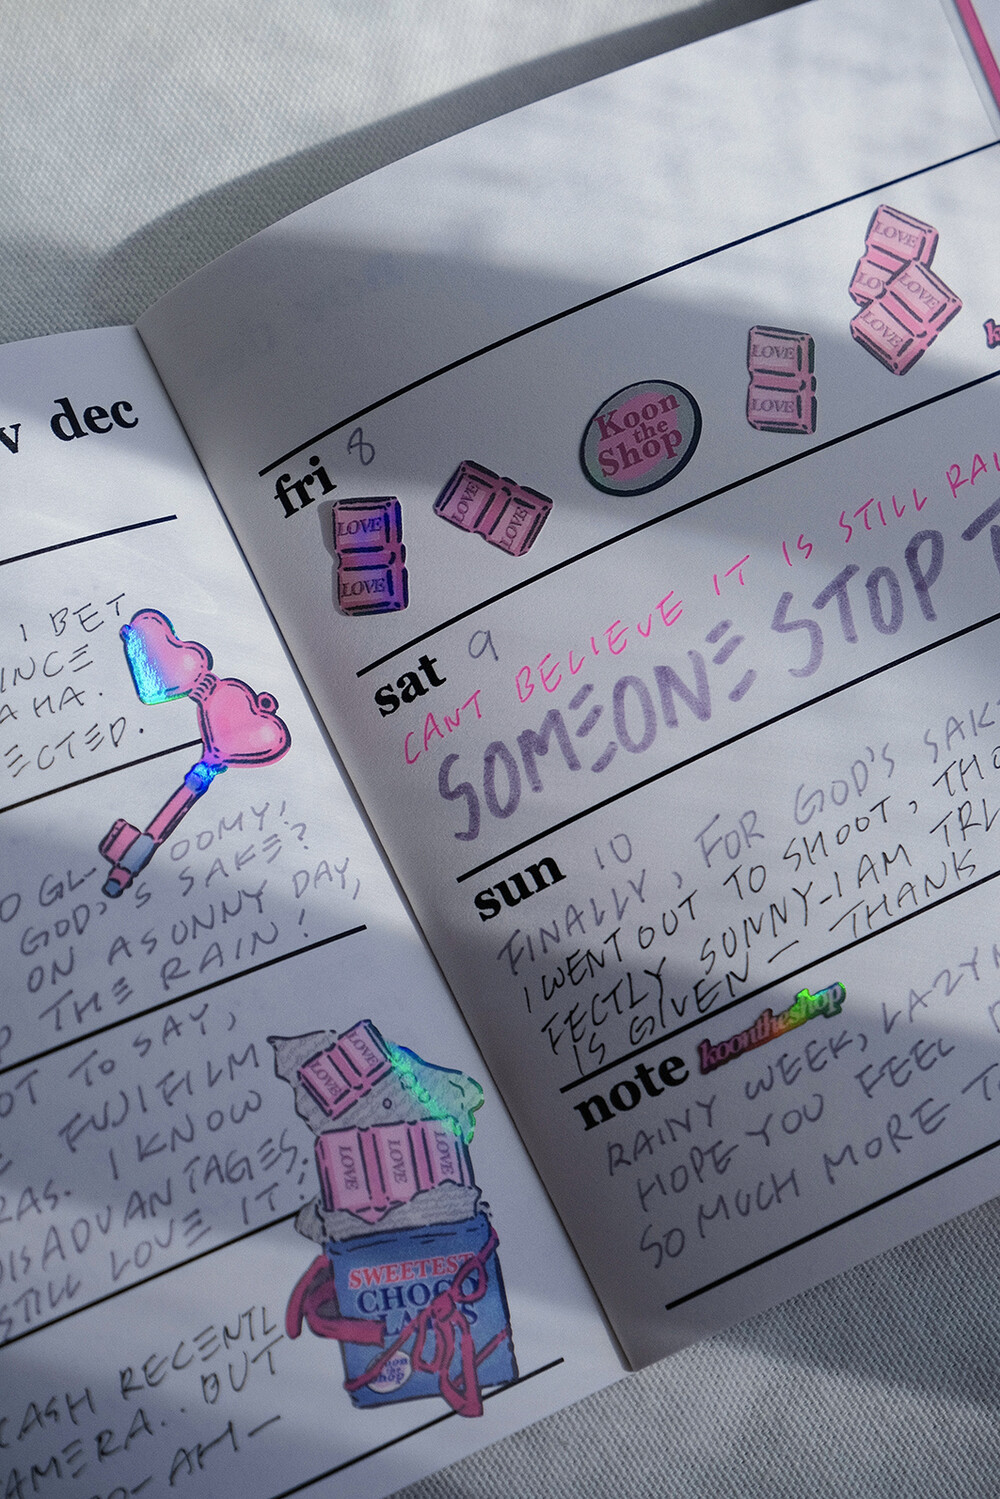 dec
I BET
INCE
AHA.
ECTED.
OOMY!
GOD'S SAKE?
ON A SUNNY DAY,
THE RAIN!
TO SAY,
FUJIFILM
I KNOW
DISADVANTAGES,
STILL LOVE IT!
CASH RECENTL
BUT
AH—
LOVE
LOVE
LOVE
LOVE
LOVE
SWEETEST
CHOCO
Koon
the
Shop
fri 8
LOVE
LOVE
LOVE
LOVE
Koon
the
Shop
LOVE
LOVE
LOVE
LO
LOVE
LOVE
sat 9
CANT BELIEVE IT IS STILL RAI
SOMEONE STOP T
sun 10
FINALLY, FOR GOD'S SAK
I WENT OUT TO SHOOT, THO
FECTLY SUNNY-I AM TRU
IS GIVEN — THANK
note koontheshop
RAINY WEEK, LAZY
HOPE YOU FEEL
SO MUCH MORE T